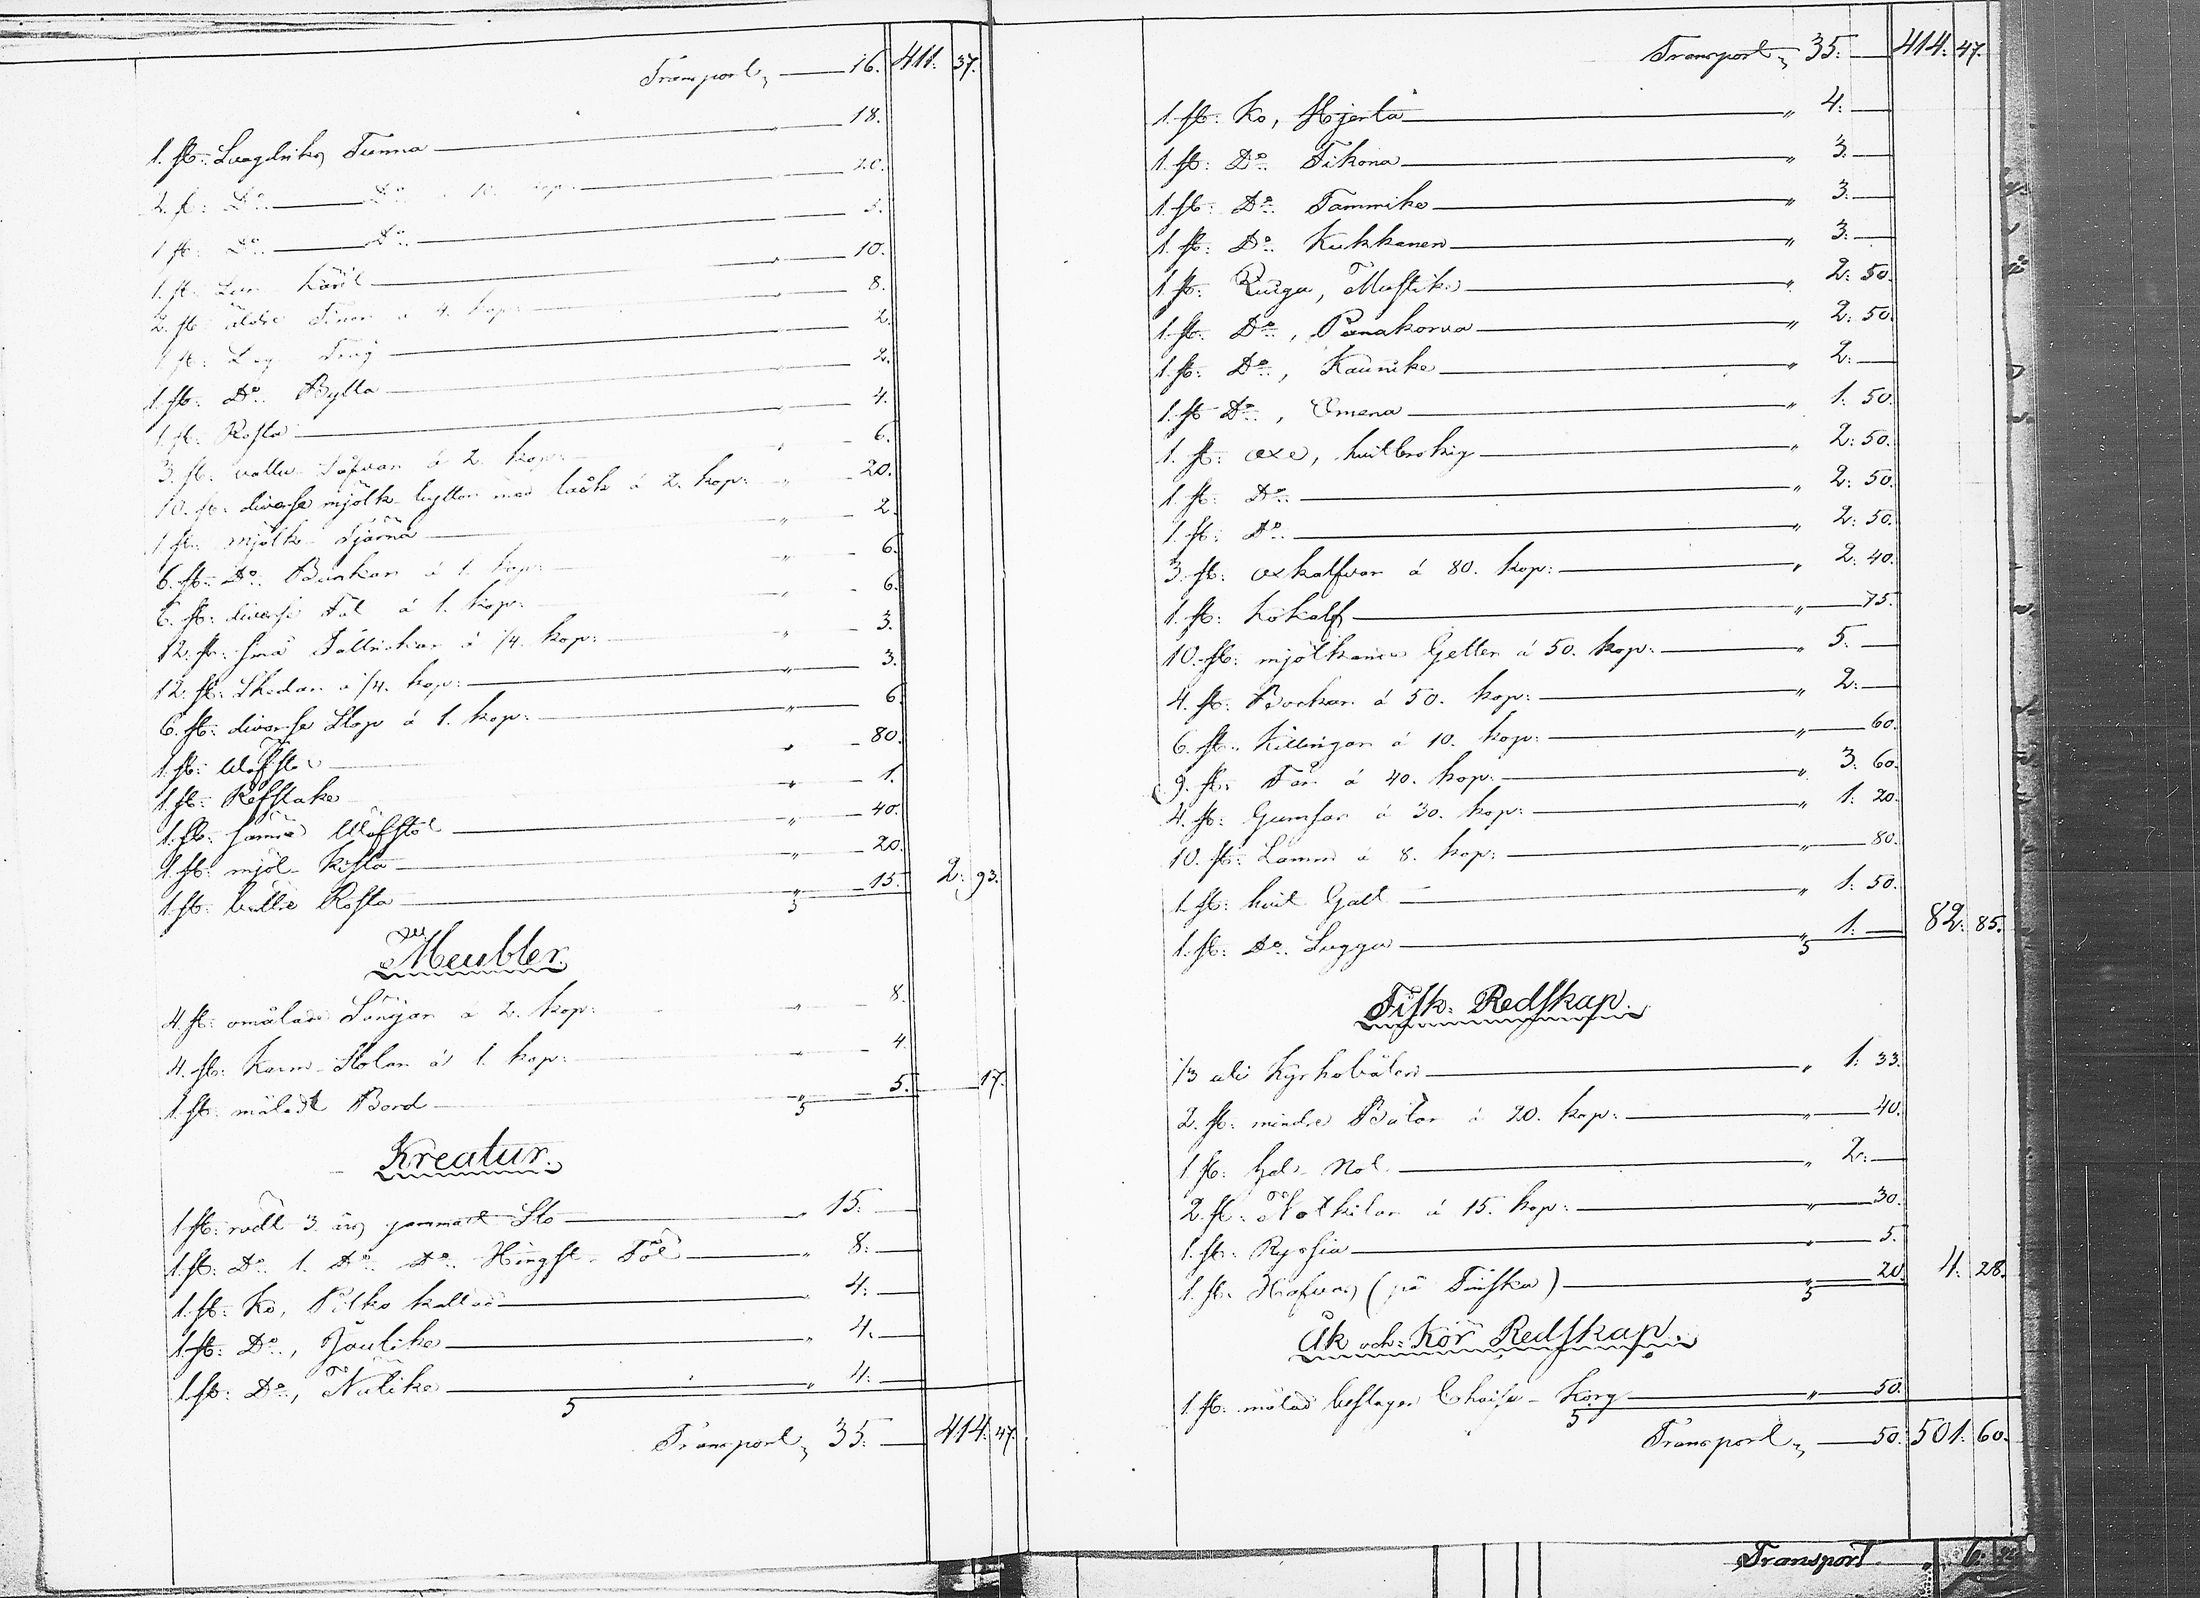 Transport, 16. 411. 37.
1. st: Tunna 18.
2. st: Do Do kop: 20.
1 st: Do Do
1. st. 10.
2. st: äldre à 4. kop: 8.
1 st: 2.
1. st: Do Bytta 2.
1. st: 4.
3. st: à 2. kop: 6.
10. st: diverse mjölk byttor med låck à 2. kop: 20.
1 st: mjölk Tjärna 2.
6. st: Do Bunkar à 1. kop: 6.
6. st: diverse Fat à 1. kop: 6.
12. st: små Tallrickar à 1/4. kop: 3.
12. st: Skedar à 1/4. kop: 3.
6. st: diverse Stop à 1. kop: 6
1. st: Wäfstol 80.
1. st: 1.
1. st: sämre Wäfstol 40.
1. st: mjöl Kista 20.
1. st: 15. 2. 93.
Meubler.
4. st: omålade Sängar à 2. kop: 8.
4. st: Karm Stolar à 1. kop: 4.
1 st: måladt Bord 5. 17.
Kreatur.
1 st: rödt 3. års gammalt Sto 15.
1. st: Do 1. Do Do Hingst Föl 8.
1 st: Ko, Pilko kallad 4.
1 st: Do, Joulike 4.
1 st: Do, 4.
Transport, 35. 414. 47.
Transport, 35. 414. 47.
1. st: Ko, Hjerta 4.
1. st: Do Tikona 3.
1. st: Do Tammike 3.
1. st: Do Kukkanen 3.
1. st: Quiga, Mustike 2. 50.
1. st: Do, Panakorva 2. 50.
1. st: Do, Kaunike 2.
1. st Do, Omena 1. 50.
1. st: oxe, hvitbrokig 2. 50.
1 st: Do 2. 50.
1 st: Do 2. 50.
3. st: oxkalfvar à 80. kop: 2. 40.
1 st: Kokalf 75.
10. st: mjölkande Getter à 50. kop: 5.
4. st: Bockar à 50. kop: 2.
6. st: Killingar à 10. kop: 60.
9. st: Får à 40. kop: 3. 60.
4. st: Gumsar à 30. kop: 1. 20.
10. st: Lamm à 8. kop: 80.
1. st: hvit Galt 1. 50.
1. st: Do Sugga 1. 82. 85.
Fisk. Redskap.
1/3 uti Kyrkobåten 1. 33.
2. st: mindre Båtar à 20. kop: 40.
1 st: Not 2.
2. st: Notkilar à 15. kop: 30.
1. st: Ryssia 5.
1. st: 20. 4. 28.
Åk och Kör Redskap.
1. st: målad beslagen Korg 50.
Transport, 50. 501. 60.
Transport 6.